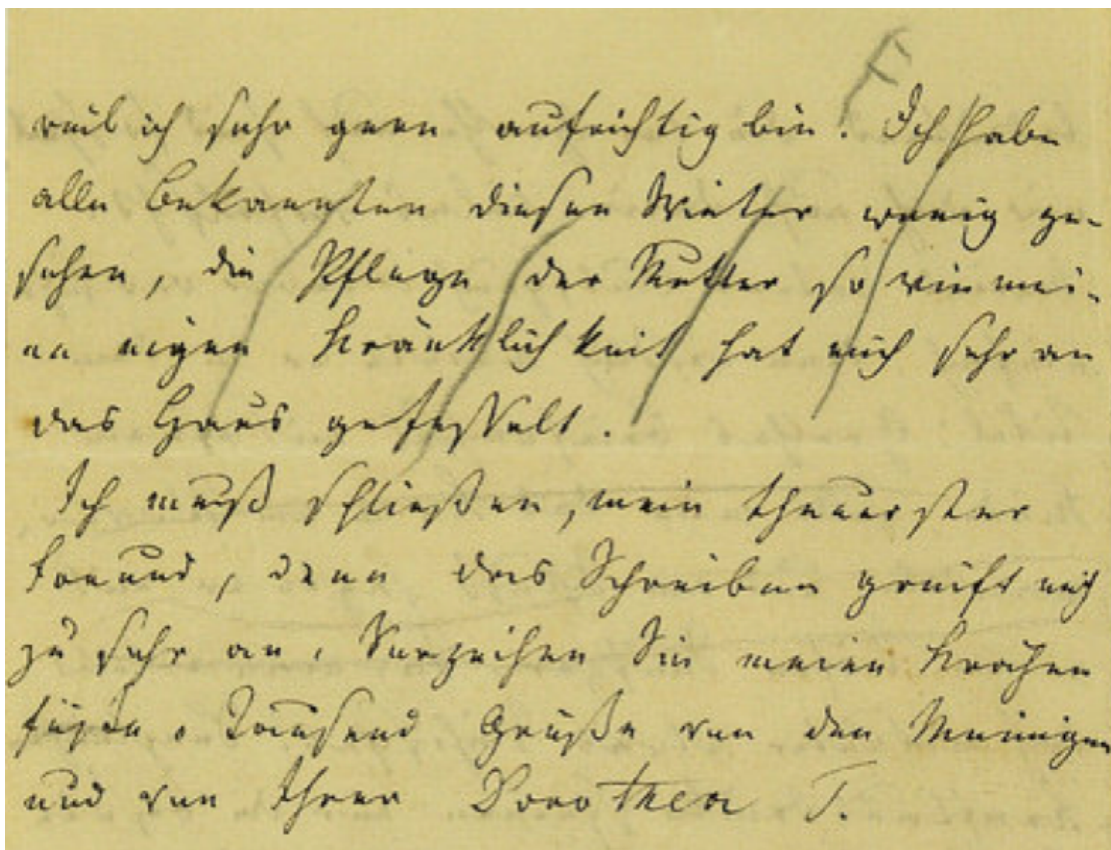 weil ich sehr gern aufrichtig bin. Ich habe
alle Bekannten diesen Winter wenig ge-
sehen, die Pflege der Mutter so wie mei-
ne eigne Kränklichkeit hat mich sehr an
das Haus gefesselt.
Ich muß schließen, mein theuerster
Freund, denn das Schreiben greift mich
zu sehr an. Verzeihen Sie meine Krähen
füße. Tausend Grüße von den Meinigen
und von Ihrer Dorothea T.